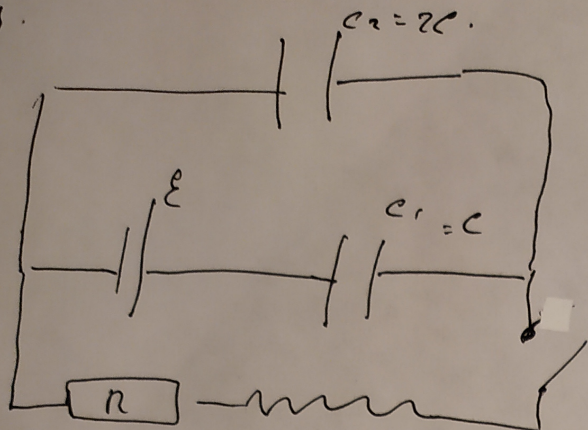 C₂ = 2C.
ℰ
C₁ = C
R